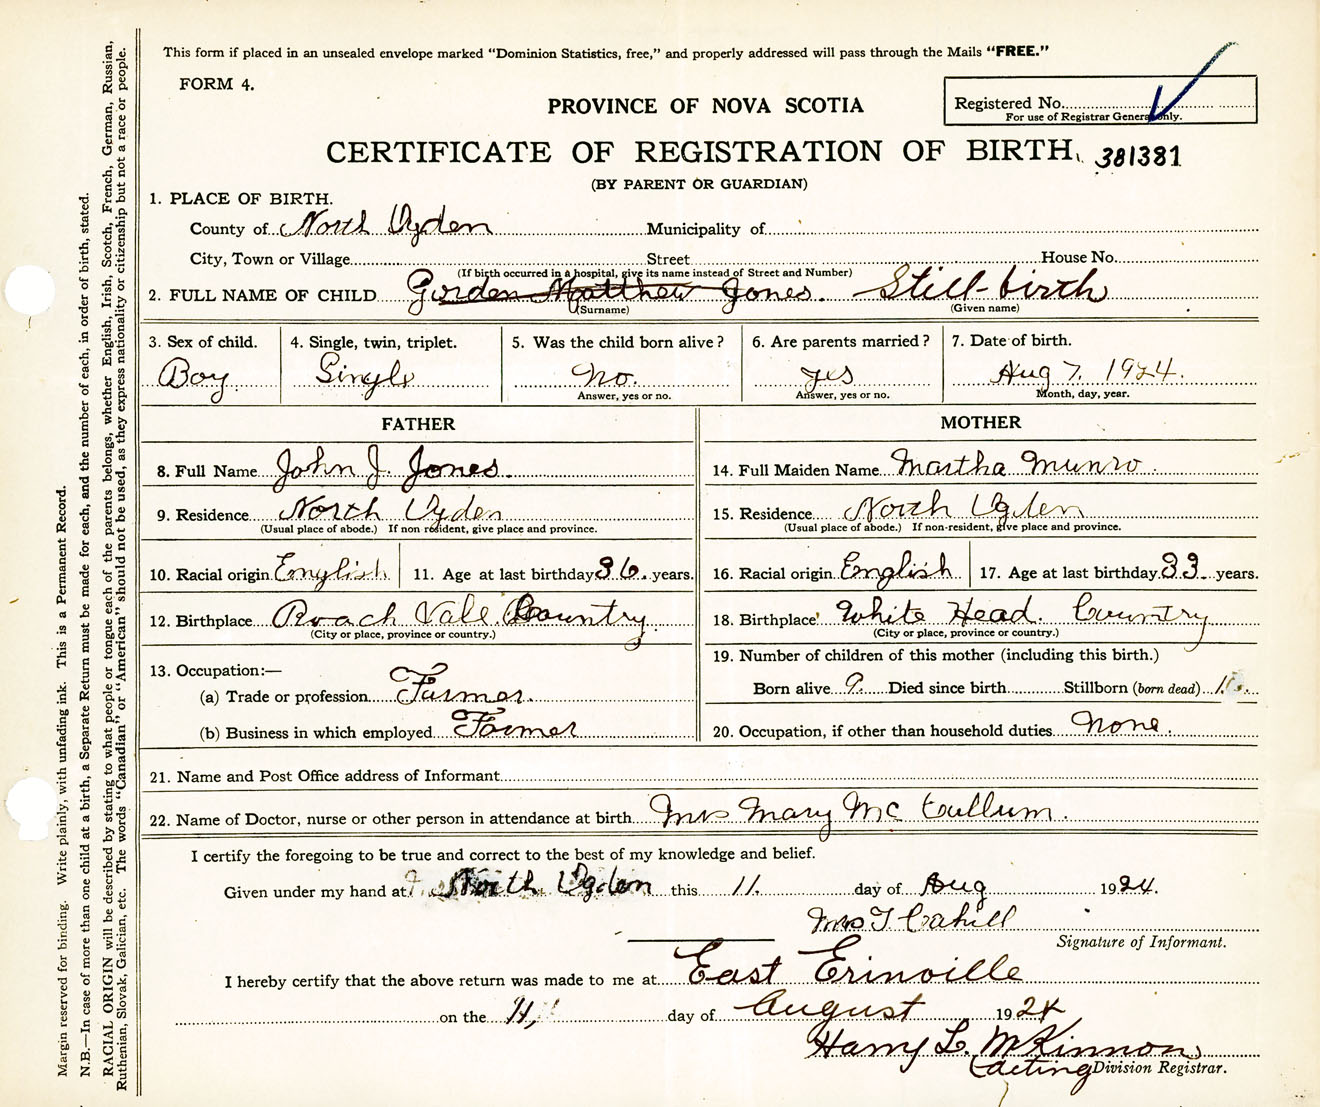 This form if placed in an unsealed envelope marked "Dominion Statistics, free," and properly addressed will pass through the Mails "FREE."
FORM 4.
Registered No.
For use of Registrar General only.
PROVINCE OF NOVA SCOTIA
CERTIFICATE OF REGISTRATION OF BIRTH 381381
(BY PARENT OR GUARDIAN)
1. PLACE OF BIRTH.
County of North Ogden Municipality of
City, Town or Village Street House No.
(If birth occurred in a hospital, give its name instead of Street and Number)
2. FULL NAME OF CHILD Gorden Matthew Jones. Still-birth
(Surname) (Given name)
3. Sex of child. 4. Single, twin, triplet. 5. Was the child born alive? 6. Are parents married? 7. Date of birth.
Boy Single No. yes Aug 7. 1924.
Answer, yes or no. Answer, yes or no. Month, day, year.
FATHER MOTHER
8. Full Name John J. Jones. 14. Full Maiden Name Martha Munro.
9. Residence North Ogden 15. Residence North Ogden
(Usual place of abode.) If non resident, give place and province. (Usual place of abode.) If non-resident, give place and province.
10. Racial origin English 11. Age at last birthday 36. years. 16. Racial origin English 17. Age at last birthday 33 years.
12. Birthplace Roach Vale. Country 18. Birthplace White Head. Country
(City or place, province or country.) (City or place, province or country.)
13. Occupation:— 19. Number of children of this mother (including this birth.)
(a) Trade or profession Farmer. Born alive 9. Died since birth Stillborn (born dead) 1
(b) Business in which employed Farmer 20. Occupation, if other than household duties None.
21. Name and Post Office address of Informant
22. Name of Doctor, nurse or other person in attendance at birth Mrs Mary Mc Cullum.
I certify the foregoing to be true and correct to the best of my knowledge and belief.
Given under my hand at North Ogden this 11. day of Aug 1924.
Mrs T Cahill
Signature of Informant.
I hereby certify that the above return was made to me at East Erinville
on the 11, day of August 1924
Harry L. McKinnon
(acting Division Registrar.
Margin reserved for binding. Write plainly, with unfading ink. This is a Permanent Record.
N.B.—In case of more than one child at a birth, a Separate Return must be made for each, and the number of each, in order of birth, stated.
RACIAL ORIGIN will be described by stating to what people or tongue each of the parents belongs, whether English, Irish, Scotch, French, German, Russian,
Ruthenian, Slovak, Galician, etc. The words "Canadian" or "American" should not be used, as they express nationality or citizenship but not a race or people.